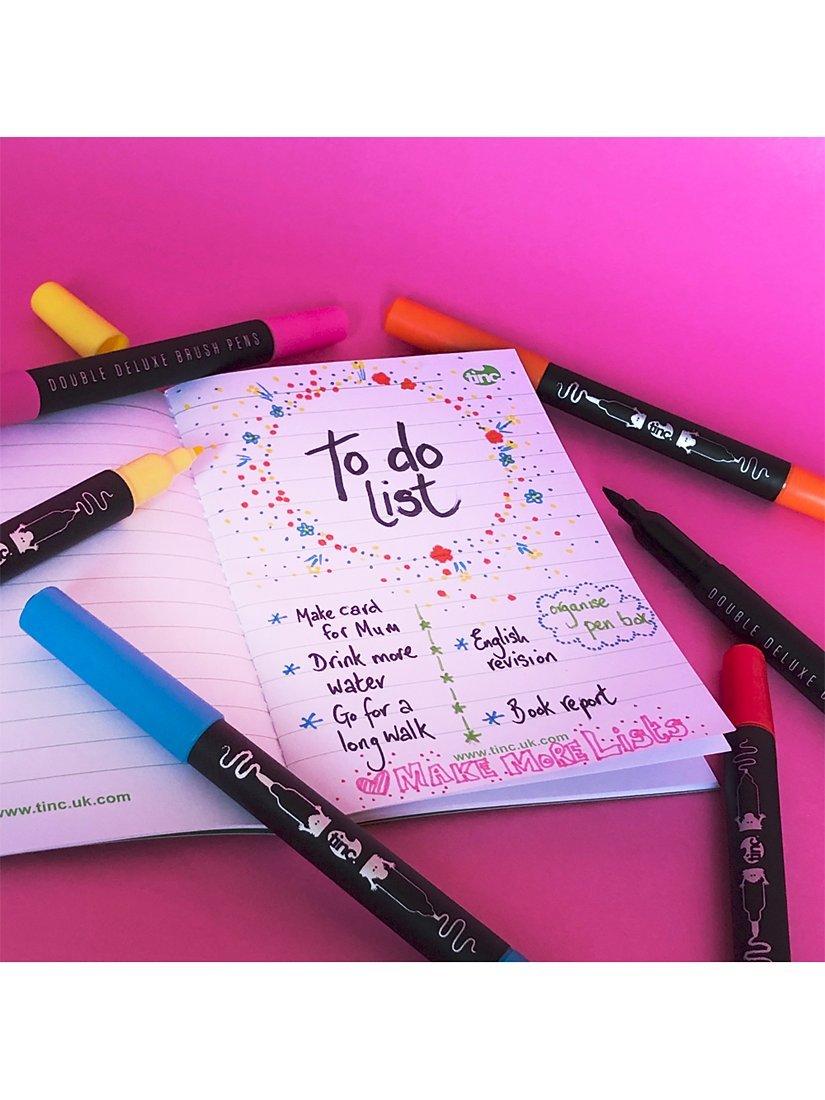 DOUBLE DELUXE BRUSH PENS
tinc
To do
list
tinc
Make card
for Mum
Drink more
water
Go for a
long walk
English
revision
Book report
organise
pen box
DOUBLE DELUXE
www.tinc.uk.com
MAKE MORE LISTS
www.tinc.uk.com
tinc
tinc